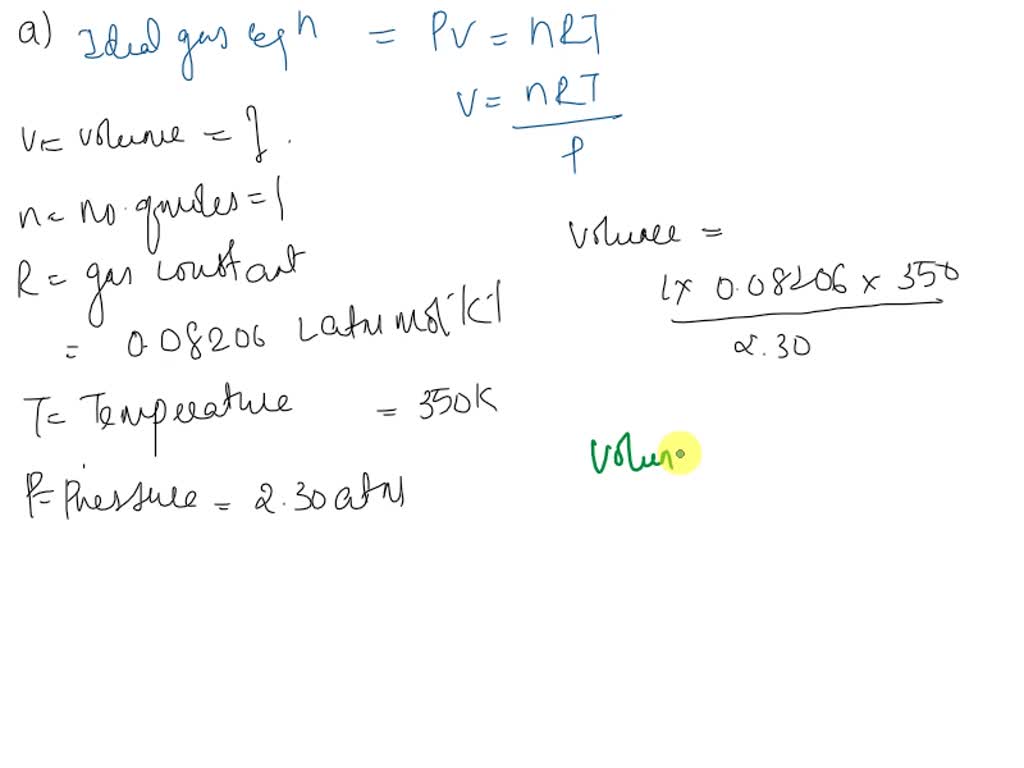 a) Ideal gas eqn = PV = nRT
V = nRT / P
V = volume = ?.
n = no. of moles = 1
R = gas constant
= 0.08206 L atm mol⁻¹ K⁻¹
T = Temperature = 350K
P = Pressure = 2.30 atm
Volume =
1 x 0.08206 x 350
2.30
Volum